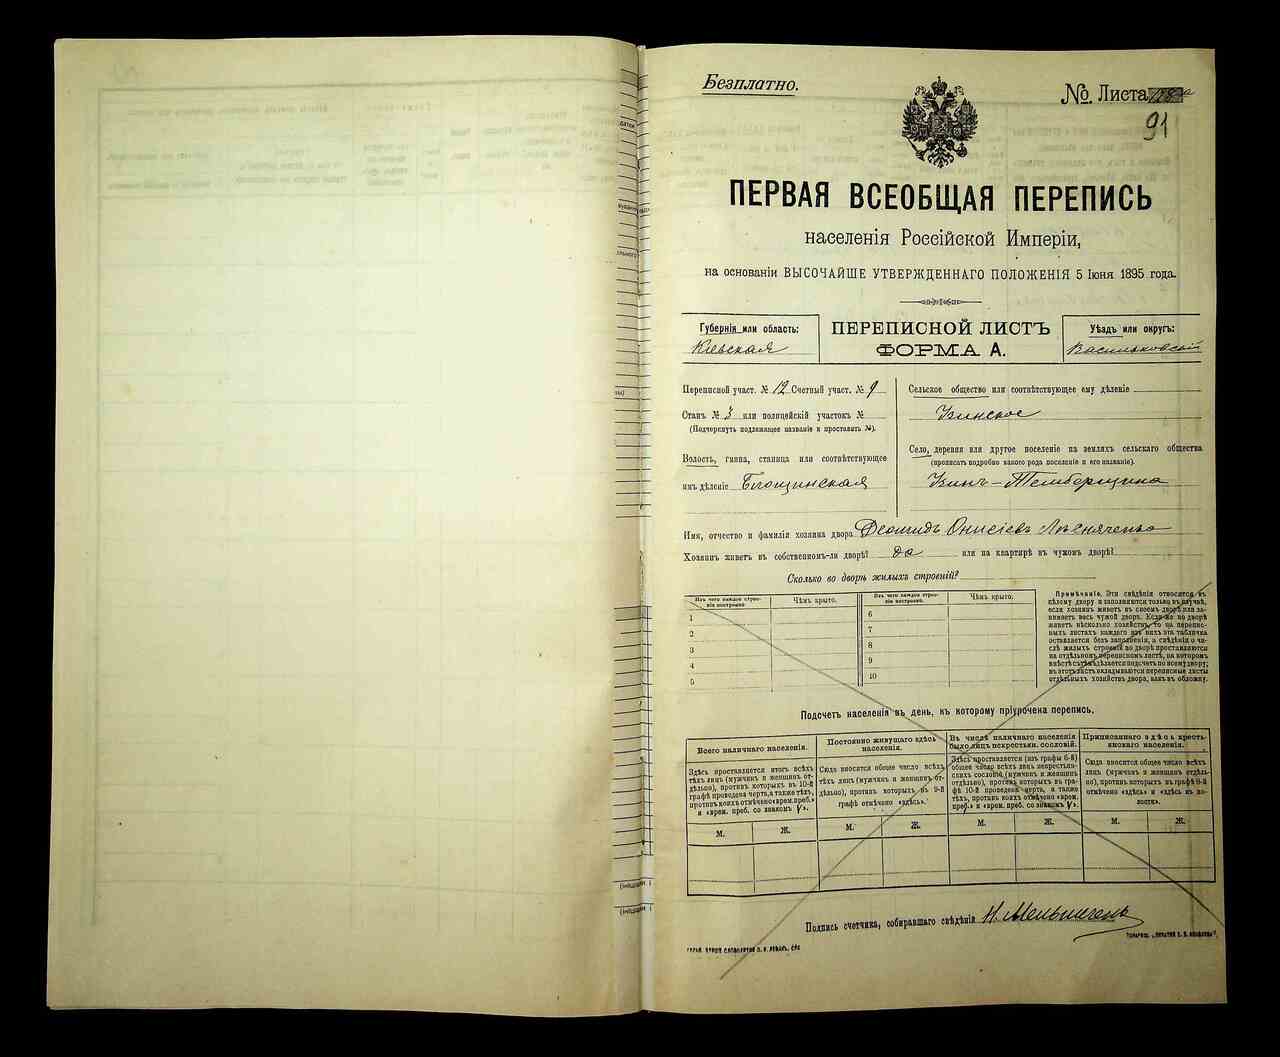 Безплатно.
№ Листа
91
ПЕРВАЯ ВСЕОБЩАЯ ПЕРЕПИСЬ
населенія Россійской Имперіи,
на основаніи ВЫСОЧАЙШЕ УТВЕРЖДЕННАГО ПОЛОЖЕНІЯ 5 Іюня 1895 года.
Губернія или область:
Кіевская
ПЕРЕПИСНОЙ ЛИСТЪ
ФОРМА А.
Уѣздъ или округъ:
Васильковскій
Переписной участ. № 12 Счетный участ. № 9
Станъ № 3 или полицейскій участокъ №
(Подчеркнуть подлежащее названіе и проставить №).
Волость, гмина, станица или соотвѣтствующее
имъ дѣленіе
Сельское общество или соотвѣтствующее ему дѣленіе
Село, деревня или другое поселеніе на земляхъ сельскаго общества
(прописать подробно какого рода поселеніе и его названіе).
Имя, отчество и фамилія хозяина двора
Хозяинъ живетъ въ собственномъ-ли дворѣ? да или на квартирѣ въ чужомъ дворѣ?
Сколько во дворѣ жилыхъ строеній?
Изъ чего каждое строе-
ніе построено
Чѣмъ крыто.
1
2
3
4
5
Изъ чего каждое строе-
ніе построено.
Чѣмъ крыто.
6
7
8
9
10
Примѣчаніе. Эти свѣдѣнія относятся къ
цѣлому двору и заполняются только въ случаѣ,
если хозяинъ живетъ въ своемъ дворѣ или за-
нимаетъ весь чужой дворъ. Если же во дворѣ
живетъ нѣсколько хозяйствъ, то на перепис-
ныхъ листахъ каждаго изъ нихъ эта табличка
оставляется безъ заполненія, а свѣдѣнія о чи-
слѣ жилыхъ строеній во дворѣ проставляются
на отдѣльномъ переписномъ листѣ, на которомъ
вмѣстѣ съ тѣмъ дѣлается подсчетъ по всему двору;
въ этотъ листъ вкладываются переписные листы
отдѣльныхъ хозяйствъ двора, какъ въ обложку.
Подсчетъ населенія въ день, къ которому пріурочена перепись.
Всего наличнаго населенія.
Здѣсь проставляется итогъ всѣхъ
тѣхъ лицъ (мужчинъ и женщинъ от-
дѣльно), противъ которыхъ въ 10-й
графѣ проведена черта, а также тѣхъ,
противъ коихъ отмѣчено «врем. преб.»
и «врем. преб. со знакомъ V».
М. Ж.
Постоянно живущаго здѣсь
населенія.
Сюда вносится общее число всѣхъ
тѣхъ лицъ (мужчинъ и женщинъ от-
дѣльно), противъ которыхъ въ 9-й
графѣ отмѣчено «здѣсь».
М. Ж.
Въ числѣ наличнаго населенія
было лицъ некрестьян. сословій.
Здѣсь проставляется (изъ графы 6-й)
общее число всѣхъ лицъ некрестьян-
скихъ сословій (мужчинъ и женщинъ
отдѣльно), противъ которыхъ въ гра-
фѣ 10-й проведена черта, а также
тѣхъ, противъ коихъ отмѣчено «врем.
преб.» и «врем. преб. со знакомъ V».
М. Ж.
Приписаннаго здѣсь кресть-
яновъ населенія.
Сюда вносится общее число всѣхъ
лицъ (мужчинъ и женщинъ отдѣль-
но), противъ которыхъ въ графѣ 8-й
отмѣчено «здѣсь» и «здѣсь въ во-
лости».
М. Ж.
Подпись счетчика, собиравшаго свѣдѣнія